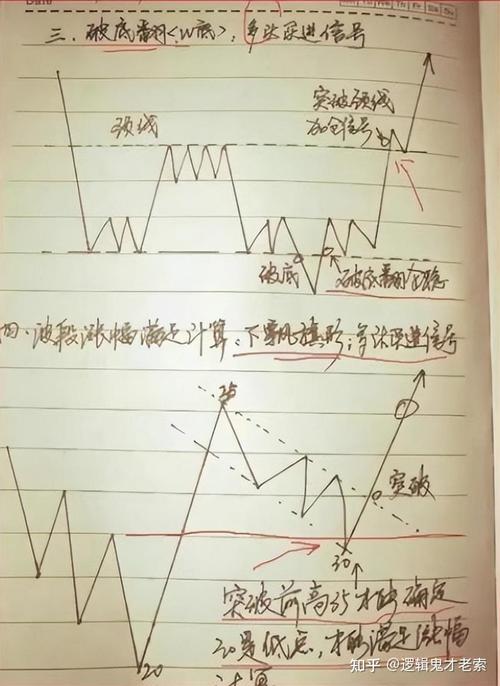 三、破底番羽<W底>,多头买进信号
突破颈线
颈线
加仓信号
破底
破底番羽
四、波段涨幅满足计算、下飘旗形:多头买进信号
35
突破
30
突破前高35才能确定
30是低点,才能满足涨幅
20
计算
知乎 @逻辑鬼才老索